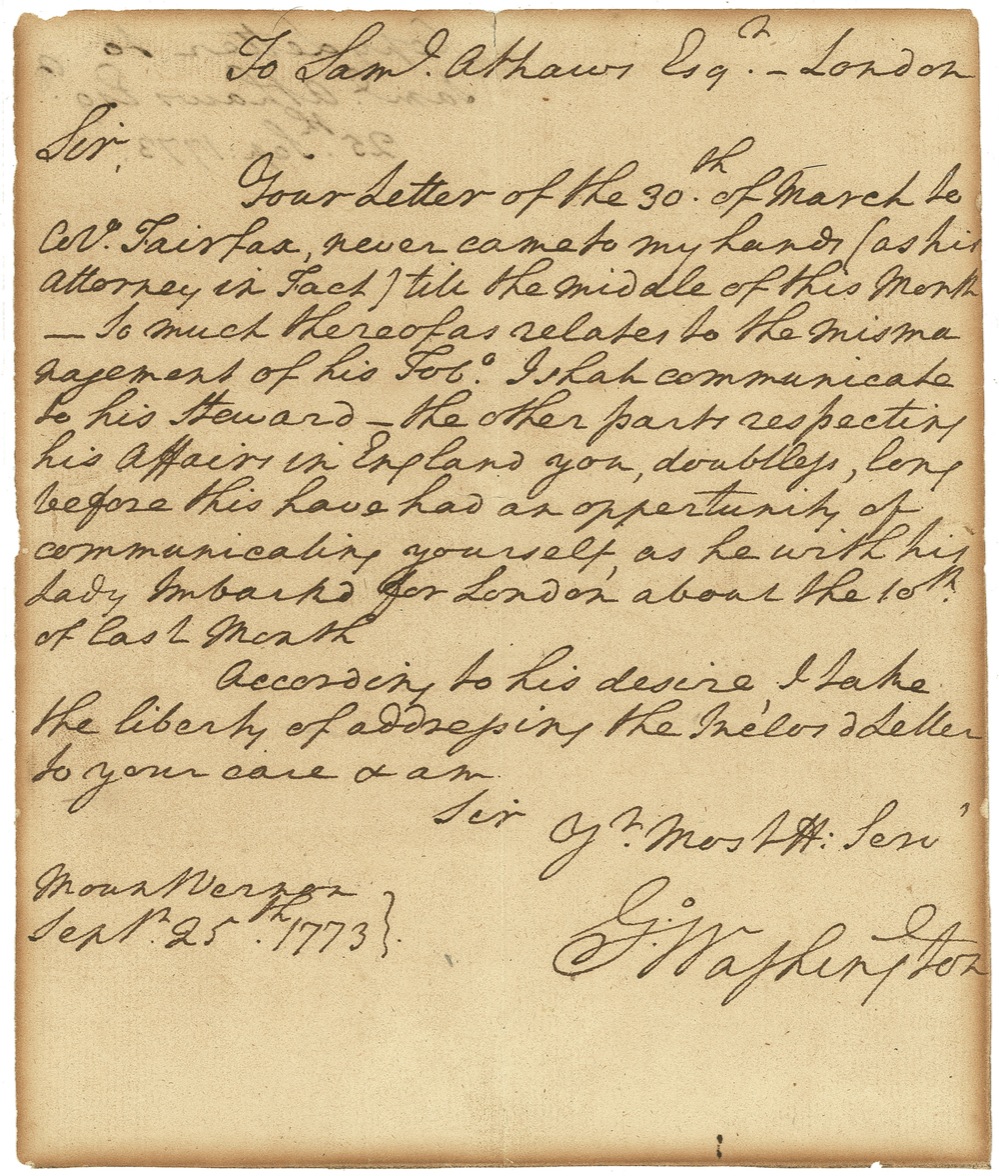 To Sam.l Athaws Esq.r - London
Sir,
Your Letter of the 30.th of March to
Col.o Fairfax, never came to my hands (as his
Attorney in Fact) till the middle of this Month
— So much thereof as relates to the misma
nagement of his Tob.o I shall communicate
to his Steward — the other parts respecting
his Affairs in England you, doubtless, long
before this have had an oppertunity of
communicating yourself, as he with his
Lady Imbarkd for London about the 10th.
of last Month
According to his desire I take
the liberty of addressing the Inclosd Letter
to your care & am
Sir
Yr. Most H: Servt
Mount Vernon
Septr. 25th. 1773
G:Washington